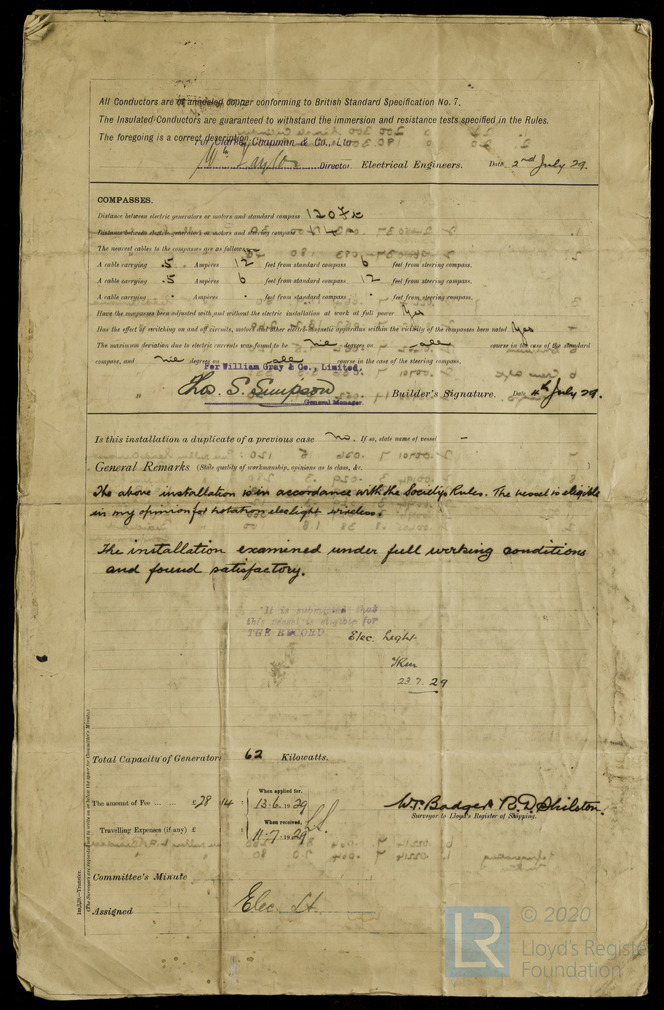 All Conductors are of annealed copper conforming to British Standard Specification No. 7.
The Insulated Conductors are guaranteed to withstand the immersion and resistance tests specified in the Rules.
The foregoing is a correct description.
For Clarke, Chapman & Co., Ltd
Director. Electrical Engineers. Date 2nd July 29.
COMPASSES.
Distance between electric generators or motors and standard compass 120 Feet
Distance between electric generators or motors and steering compass
The nearest cables to the compasses are as follows:
A cable carrying .5 Ampères 12 feet from standard compass 6 feet from steering compass.
A cable carrying .5 Ampères 6 feet from standard compass 12 feet from steering compass.
A cable carrying - Ampères - feet from standard compass - feet from steering compass.
Have the compasses been adjusted with and without the electric installation at work at full power Yes
Has the effect of switching on and off circuits, motors and other electro-magnetic apparatus within the vicinity of the compasses been noted Yes
The maximum deviation due to electric currents was found to be nil degrees on all course in the case of the standard
compass, and nil degrees on all course in the case of the steering compass.
For William Gray & Co., Limited,
Thos. S. Simpson Builder's Signature. Date 4th July 29.
General Manager.
Is this installation a duplicate of a previous case no. If so, state name of vessel -
General Remarks (State quality of workmanship, opinions as to class, &c. )
The above installation is in accordance with the Society's Rules. The vessel is eligible
in my opinion for notation elec light wireless.
The installation examined under full working conditions
and found satisfactory.
It is submitted that
this vessel is eligible for
THE RECORD. Elec. Light.
23.7.29
Total Capacity of Generators 62 Kilowatts.
The amount of Fee ... ... £28 : 14 : When applied for, 13.6.1929
Travelling Expenses (if any) £ : : When received, 11.7.1929
Wt. Badger R.D. Shilston.
Surveyor to Lloyd's Register of Shipping.
Committee's Minute
Assigned Elec. Lt.
LR © 2020
Lloyd's Register
Foundation